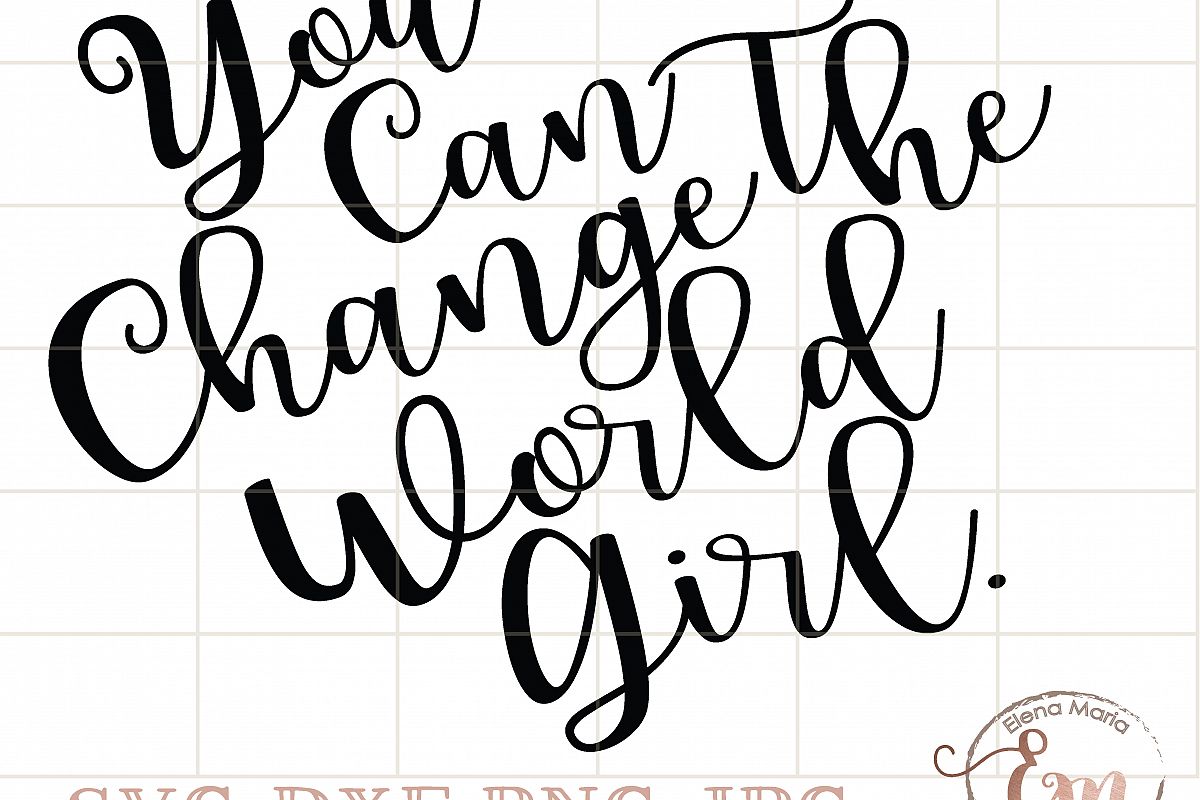 You
Can The
Change
World
Girl.
Elena Maria
Em
SVG DXF PNG JPG